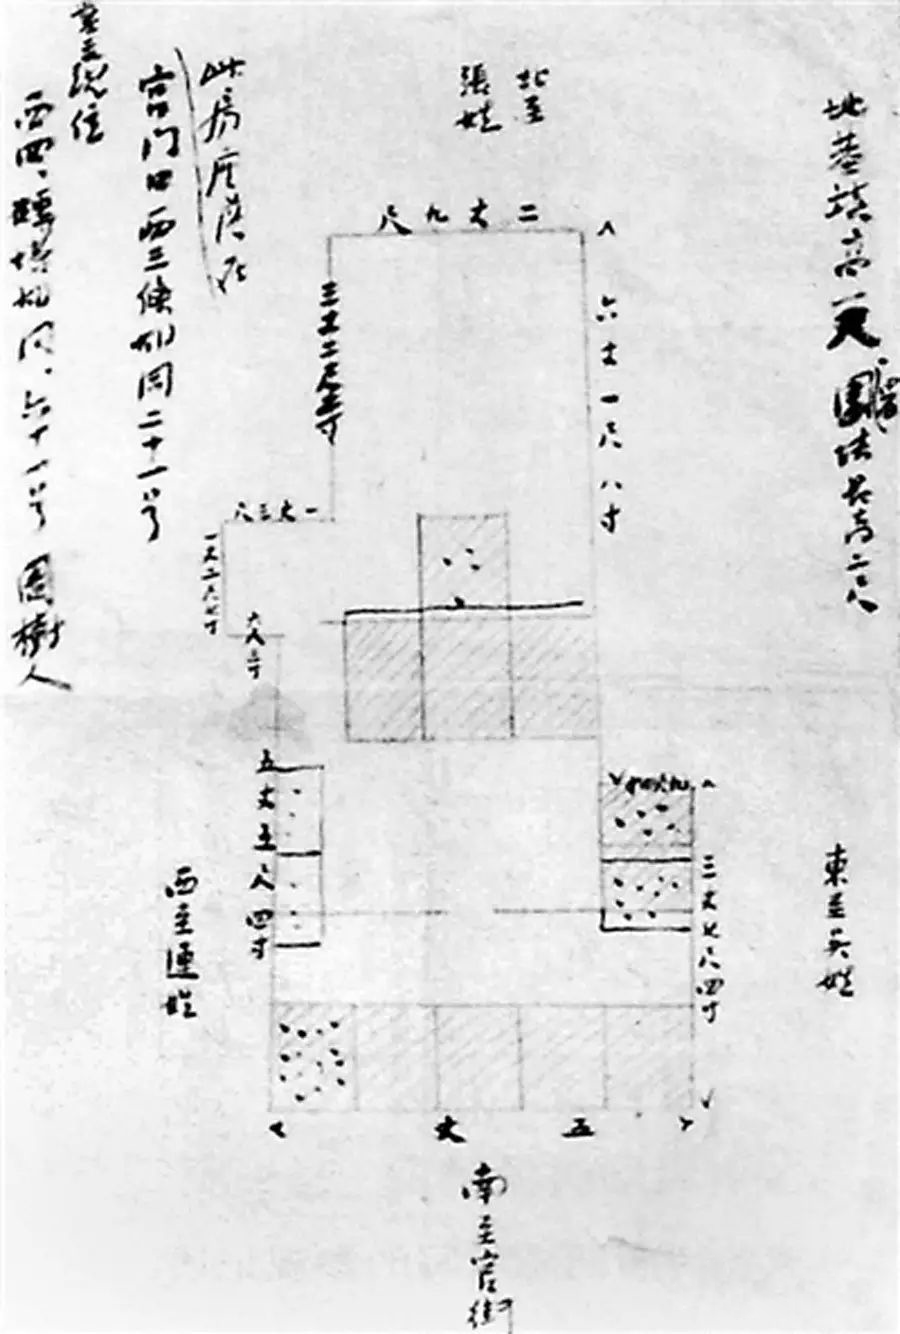 地基填高一尺
圍墻若高二尺
北至
張姓
此房座落在
宫門口西三條胡同二十一号
業主現住
西四、磚塔胡同、六十一号 周樹人
二丈九尺
六丈一尺八寸
三丈二尺三寸
一丈三尺
六尺三寸
五丈五尺四寸
三丈七尺四寸
東至吴姓
西至連姓
五丈
南至官街